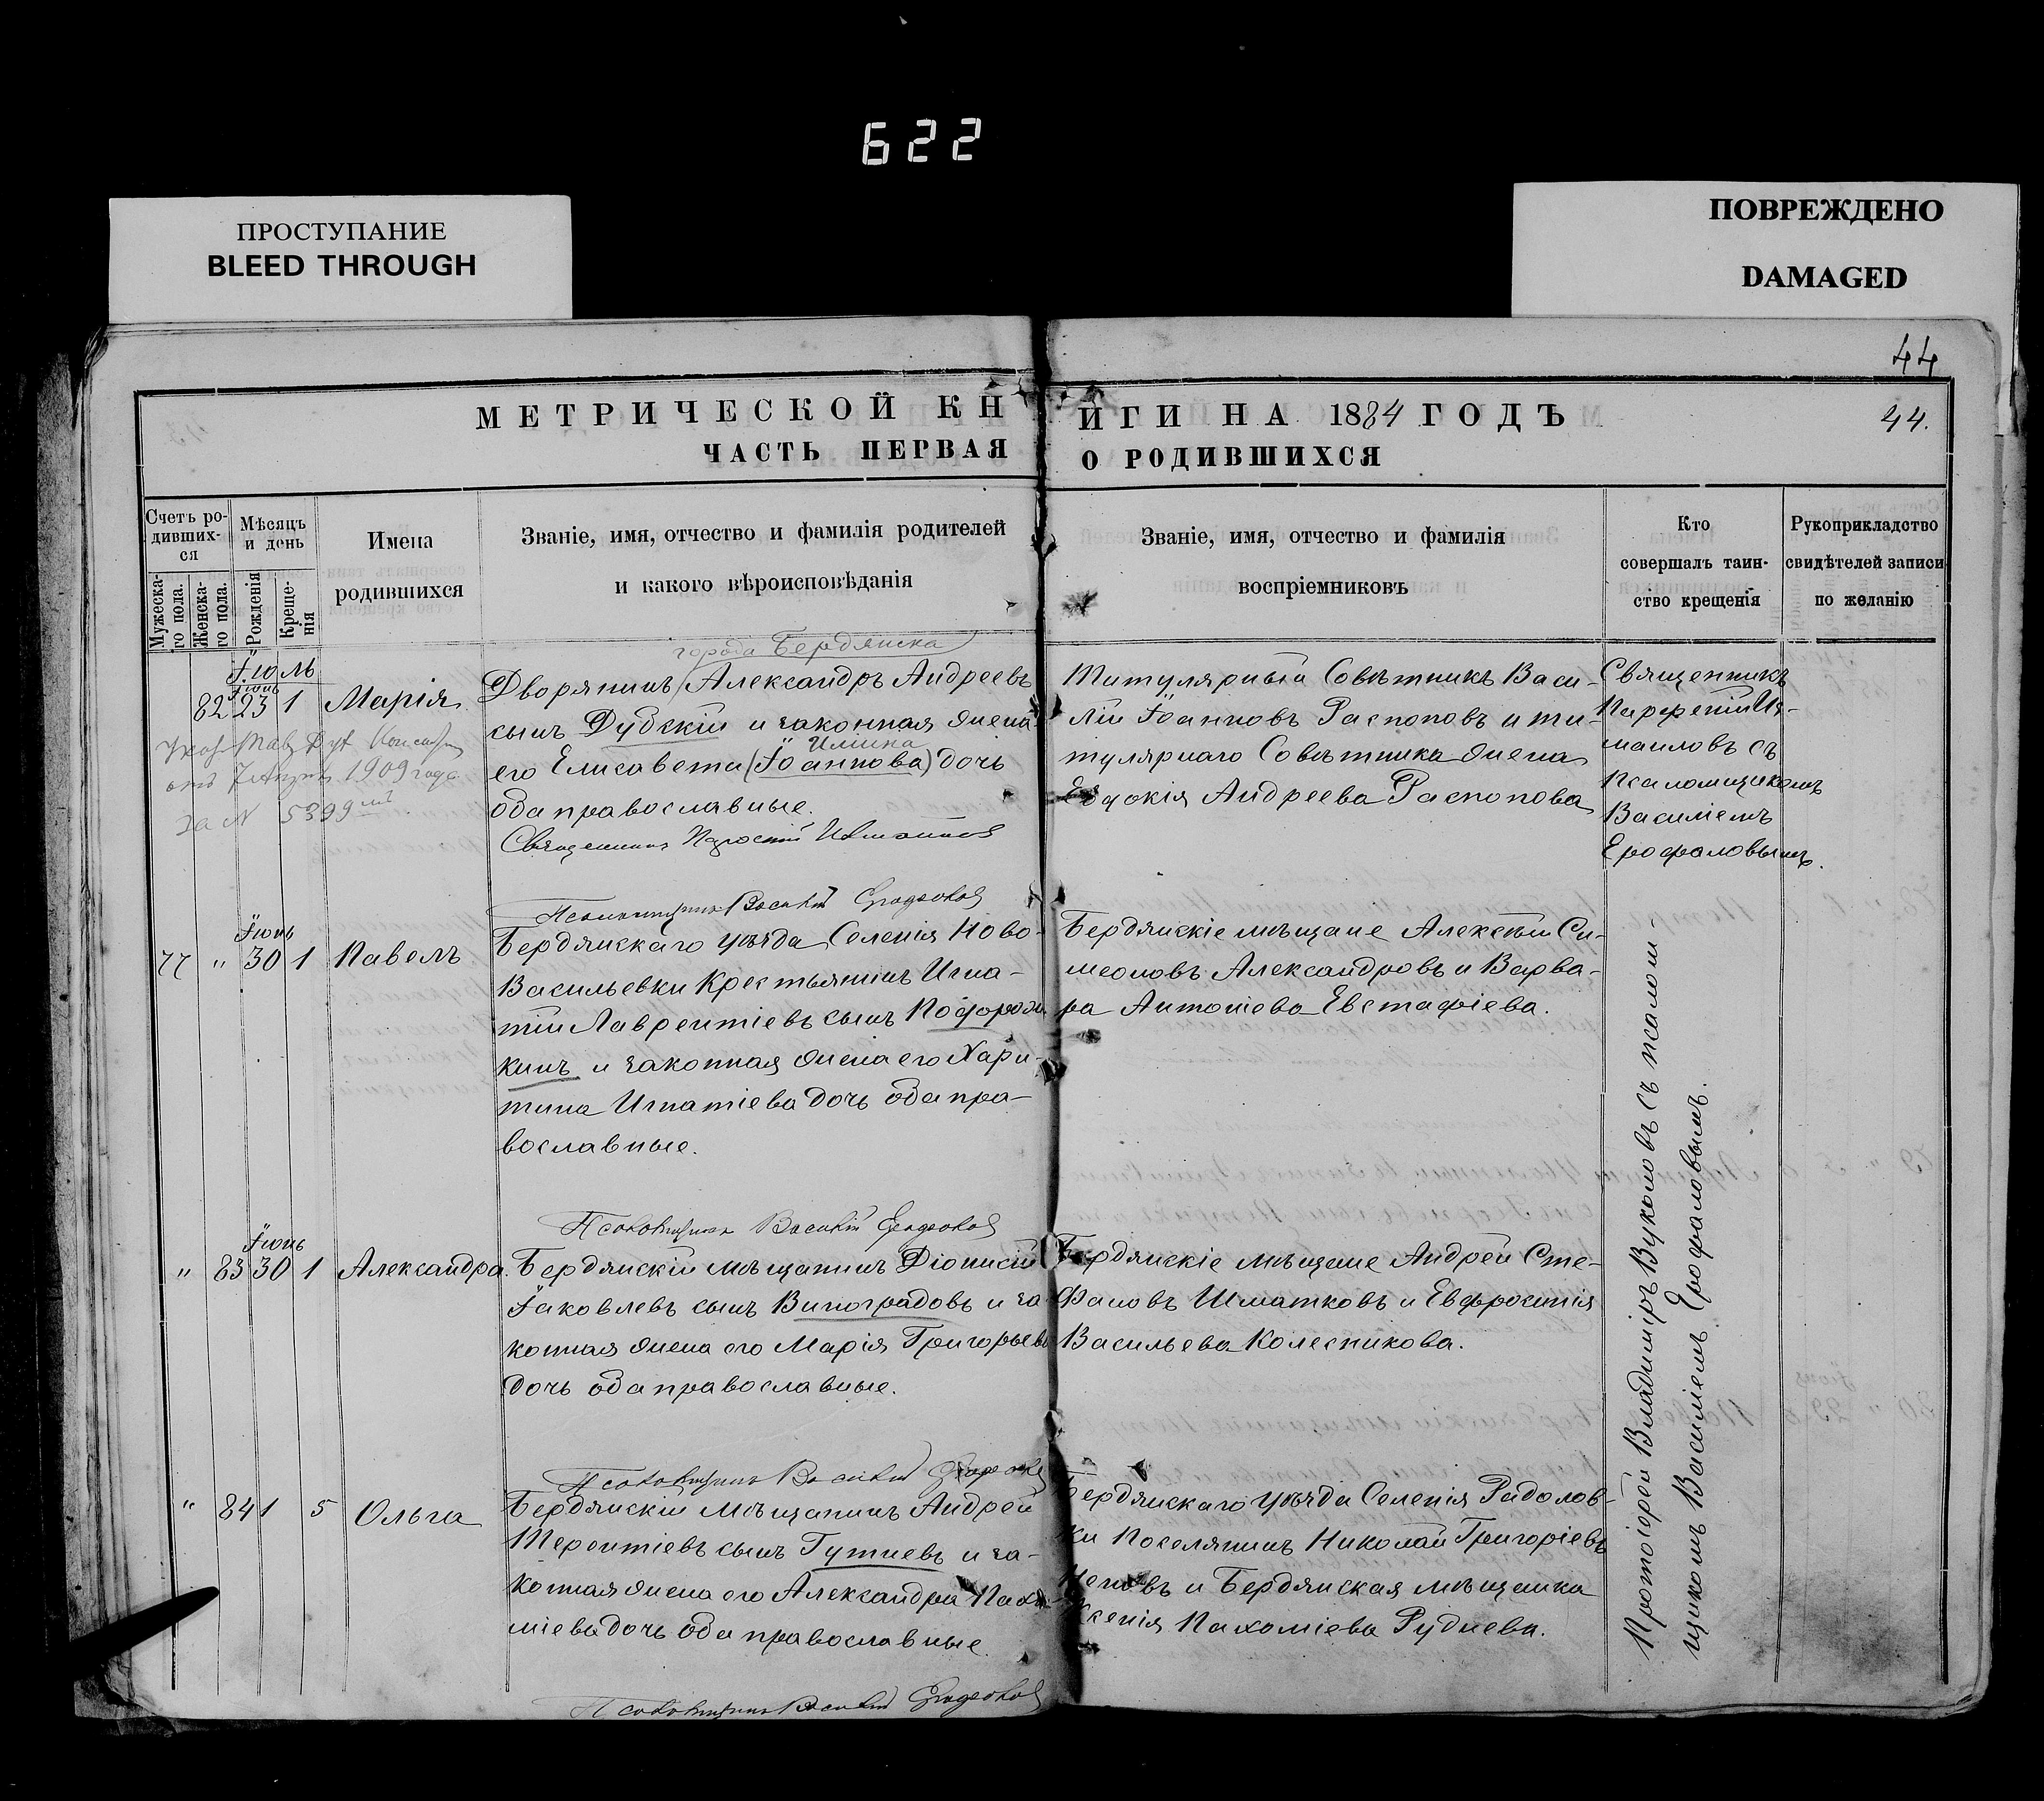 622
ПРОСТУПАНИЕ
BLEED THROUGH
ПОВРЕЖДЕНО
DAMAGED
44
МЕТРИЧЕСКОЙ КНИГИ НА 1884 ГОДЪ
44.
ЧАСТЬ ПЕРВАЯ О РОДИВШИХСЯ
Счетъ ро-
дивших-
ся
Мужеска-
го пола.
Женска-
го пола.
Мѣсяцъ
и день
Рожденія
Креще-
нія
Имена
родившихся
Званіе, имя, отчество и фамилія родителей
и какого вѣроисповѣданія
Званіе, имя, отчество и фамилія
воспріемниковъ
Кто
совершалъ таин-
ство крещенія
Рукоприкладство
свидѣтелей записи
по желанію
Іюль
Іюнь
82 23 1 Марія
от 7 1909 года
за N 5399
города Бердянска
Дворянинъ Александръ Андреевъ
сынъ Дубскій и законная жена
его Елисавета (Іоаннова) дочь
оба православные.
Титулярный Совѣтникъ Васи-
лій Іоанновъ Распоповъ и ти-
тулярнаго Совѣтника жена
Евдокія Андреева Распопова
Священникъ
Парфеній Из-
маиловъ съ
Псаломщикомъ
Василіемъ
Ерофаловымъ.
Псаломщикъ Василій
Іюнь
77 " 30 1 Павелъ
Бердянскаго уѣзда Селенія Ново-
Васильевки Крестьянинъ Игна-
тій Лаврентіевъ сынъ
кинъ и законная жена его Хари-
тина Игнатіева дочь оба пра-
вославные.
Бердянскіе мѣщане Алексѣй Си-
меоновъ Александровъ и Варва-
ра Антоніева Евстафіева.
Псаломщикъ Василій
Іюнь
" 83 30 1 Александра.
Бердянскій мѣщанинъ Діонисій
Іаковлевъ сынъ Виноградовъ и за-
конная жена его Марія Григорьева
дочь оба православные.
Бердянскіе мѣщане Андрей Сте-
фановъ Шматковъ и Евфросинія
Васильева Колесникова.
Псаломщикъ Василій
" 84 1 5 Ольга
Бердянскій мѣщанинъ Андрей
Терентіевъ сынъ Гутневъ и за-
конная жена его Александра Пахо-
міева дочь оба православные.
Бердянскаго уѣзда Селенія Радолов-
ки Поселянинъ Николай Григоріевъ
и Бердянская мѣщанка
Ксенія Пахоміева Руднева.
Псаломщикъ Василій
Протоіерей Владиміръ Вуколовъ съ псалом-
щикомъ Василіемъ Ерофаловымъ.